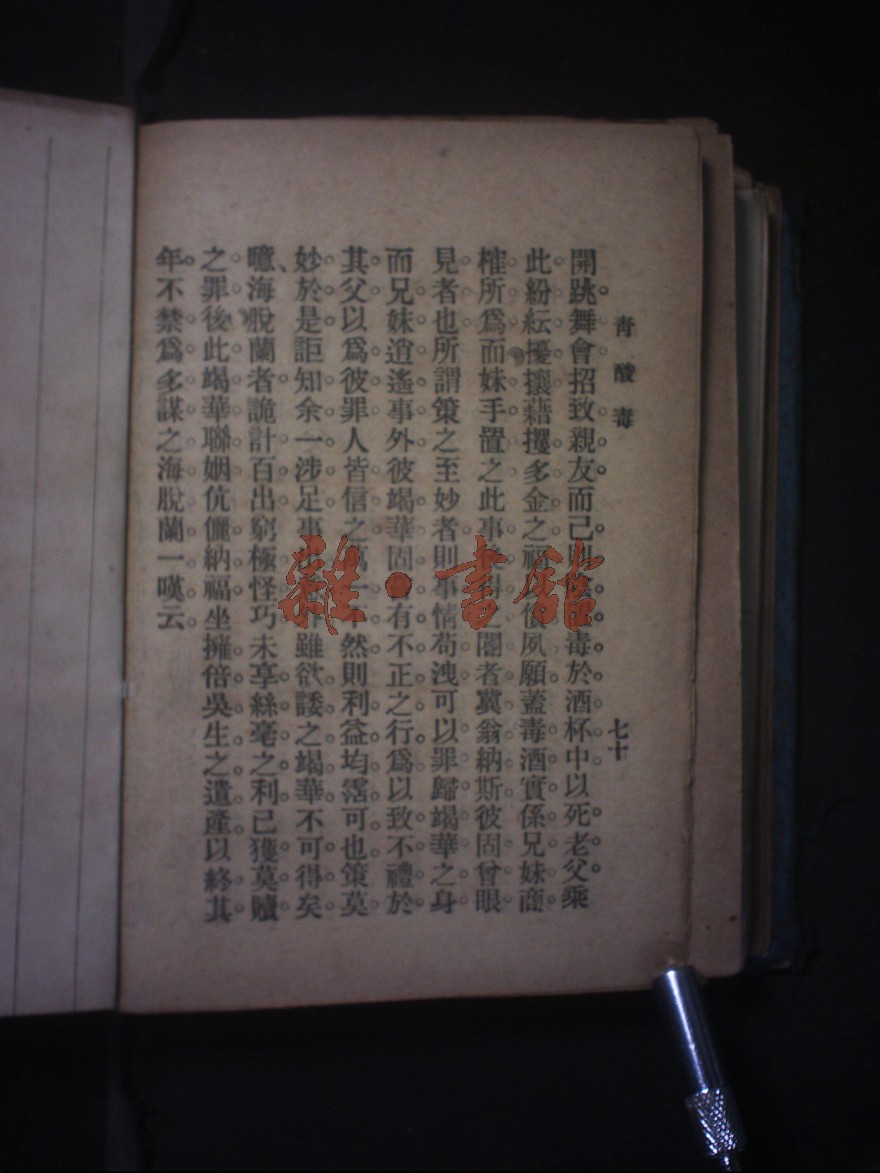 青酸毒
七十
開跳舞會招致親友而已則 毒於酒杯中以死老父乘
此紛紜擾攘藉攫多金之福 償夙願蓋毒酒實係兄妹商
榷所爲而妹手置之此事 閣者冀翁納斯彼固曾眼
見者也所謂策之至妙者則事情苟洩可以罪歸竭華之身
而兄妹逍遙事外彼竭華固 有不正之行爲以致不禮於
其父以爲彼罪人皆信之萬一 然則利益均霑可也策莫
妙於是詎知余一涉足事 雖欲諉之竭華不可得矣
噫、海脫蘭者詭計百出窮極怪巧未享絲毫之利已獲莫贖
之罪後此竭華聯姻伉儷納福坐擁倍吳生之遺產以終其
年不禁爲多謀之海脫蘭一嘆云
雜·書館